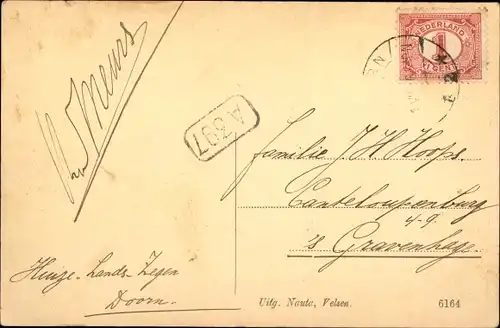 NEDERLAND
1
CENT
A 397
Meurs
Familie J H Hoops.
Canteloupenburg
4-9.
's Gravenhage.
Huize-Lands-Zegen
Doorn.
Uitg. Nauta, Velsen.
6164